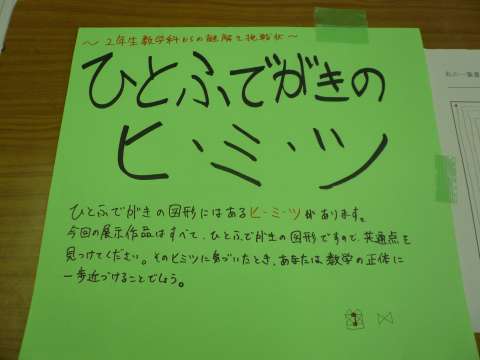 ～2年生数学科からの謎解き挑戦状～
ひとふでがきの
ヒ・ミ・ツ
ひとふでがきの図形にはあるヒ・ミ・ツがあります。
今回の展示作品はすべて、ひとふでがきの図形ですので、共通点を
見つけてください。そのヒミツに気づいたとき、あなたは数学の正体に
一歩近づけることでしょう。
私の一筆書